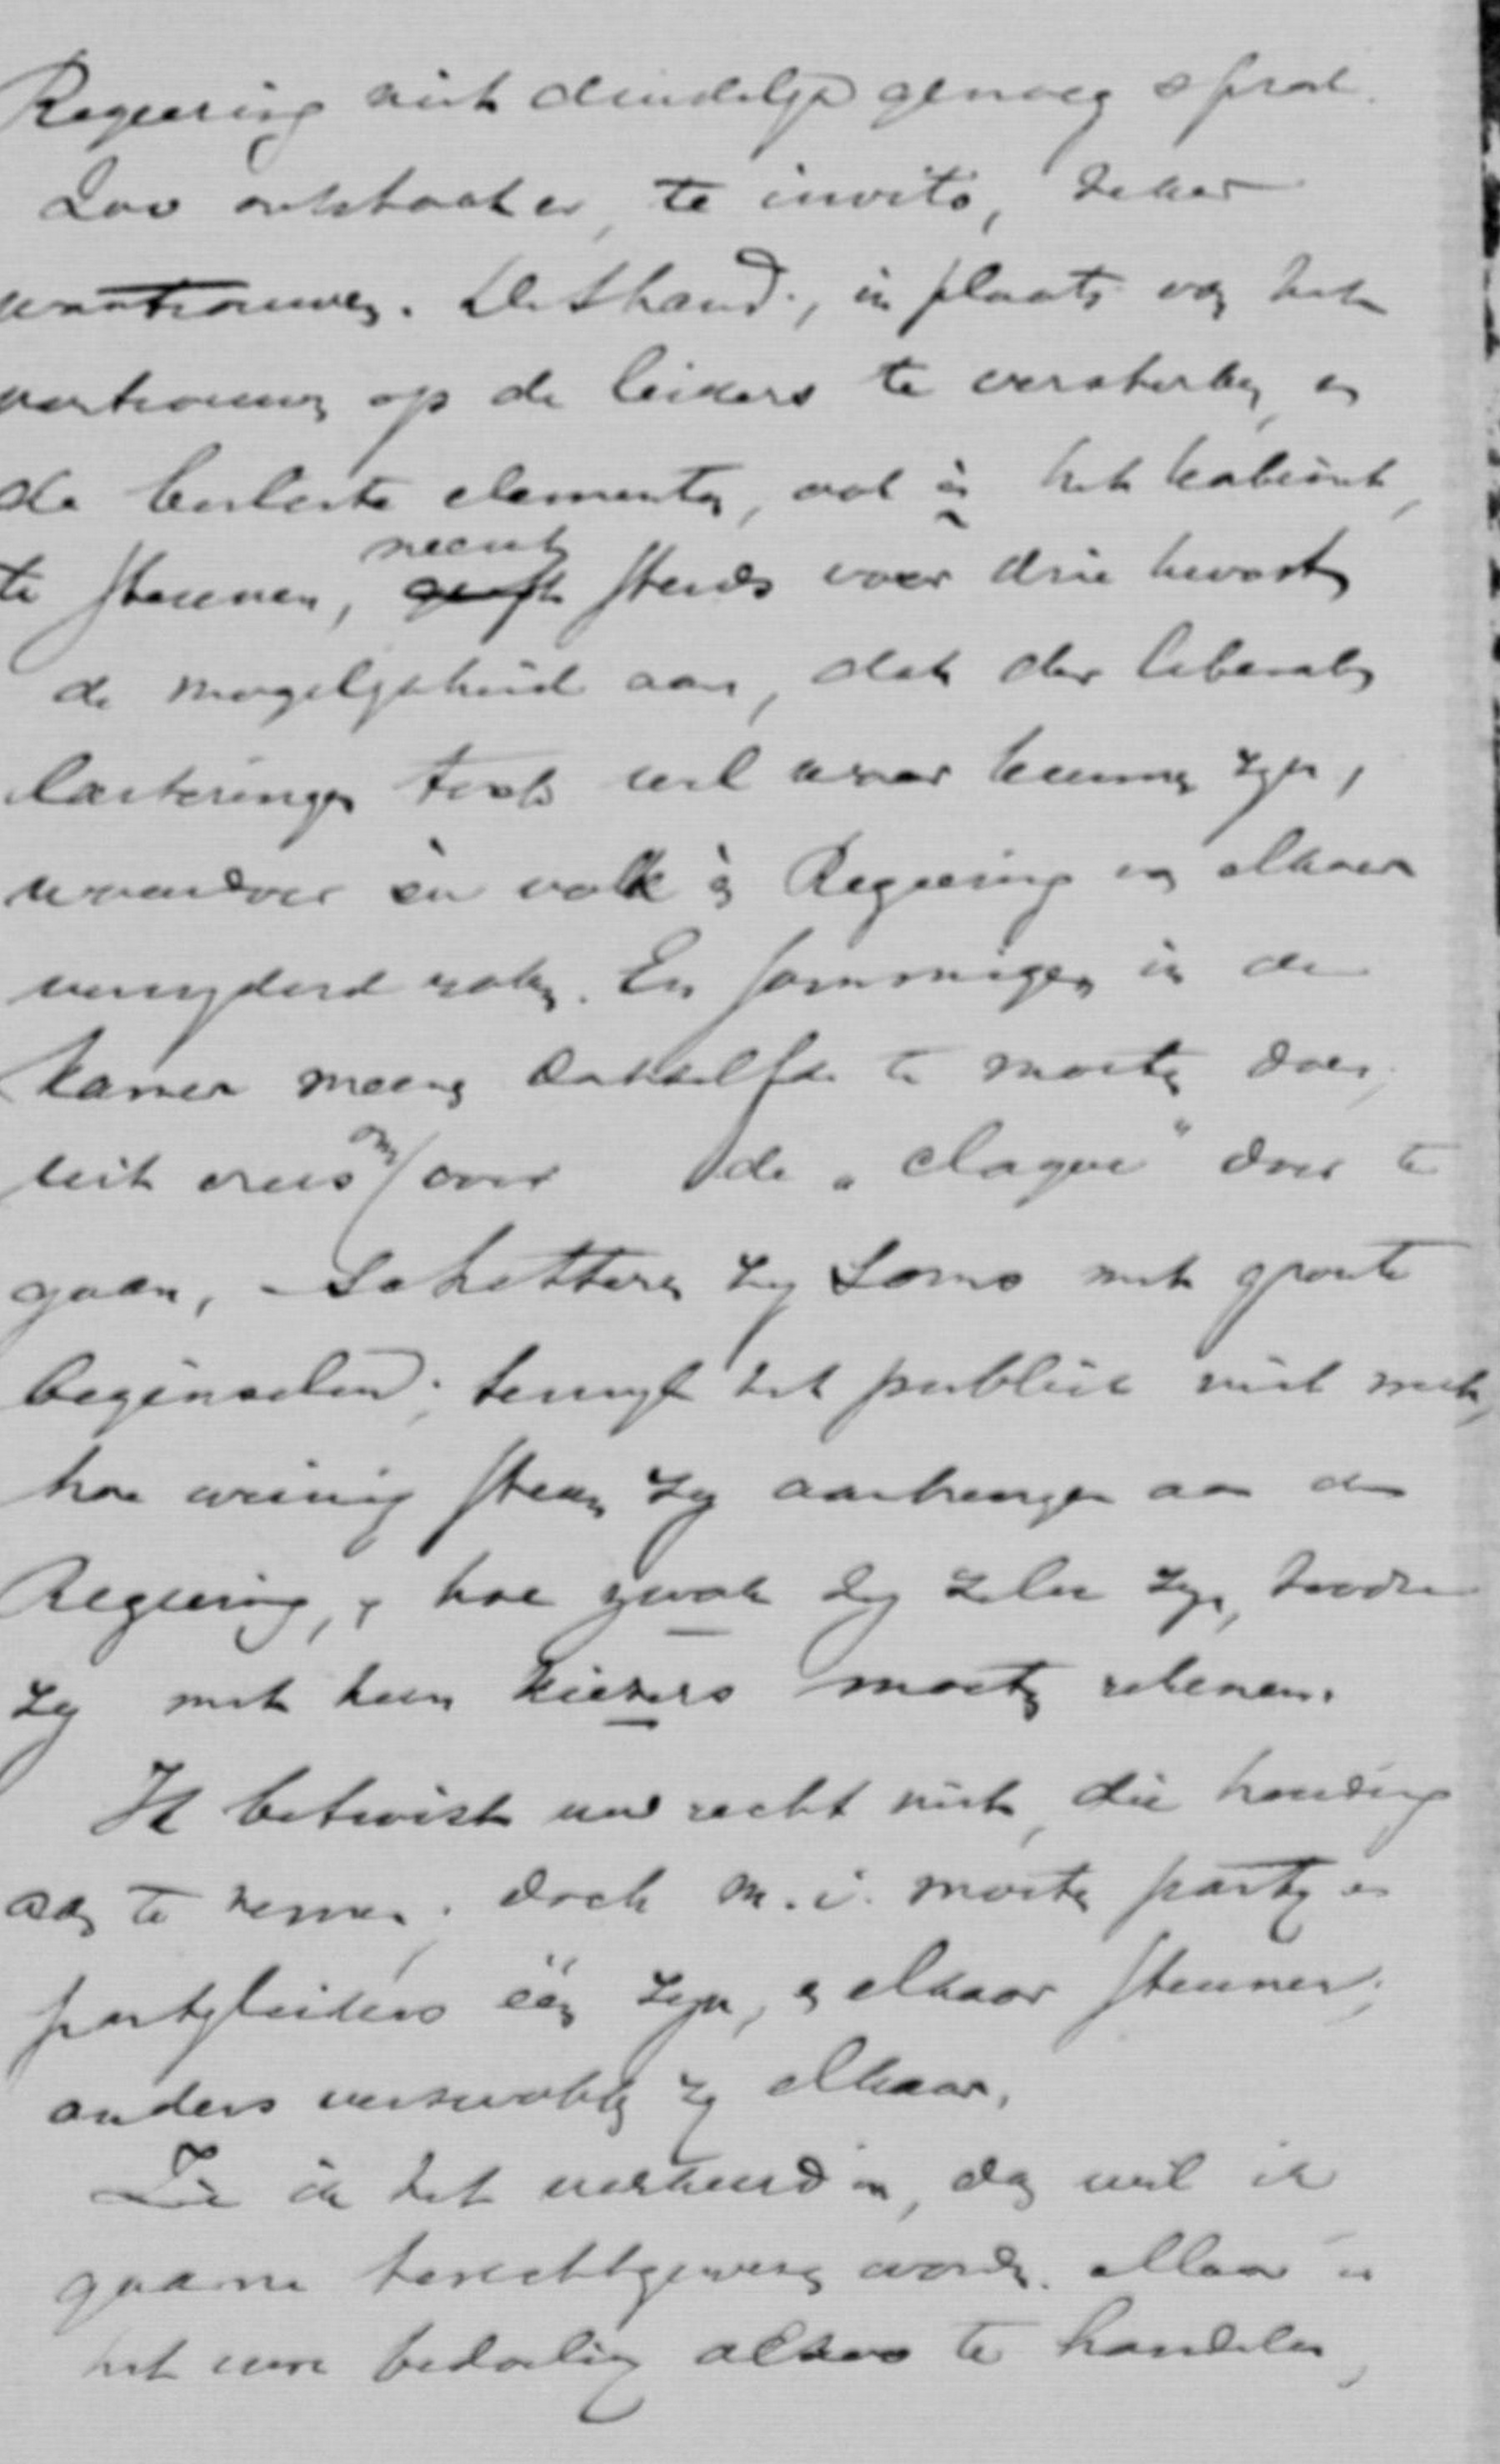 Regeering niet duidelijk genoeg sprak.
Zoo ontstaat er, te invito, zeker
wantrouwen. De Stand., in plaats van het
vertrouwen op de leiders te versterken, en
de beste elementen, ook in het kabinet,
te steunen, neemt steeds voor drie kwart
de mogelijkheid aan, dat der liberalen
lasteringen toch wel waar kunnen zijn,
waardoor èn volk èn Regeering van elkaar
verwijderd raken. En sommigen in de
Kamer meenen datzelfde te moeten doen,
uit vrees om over de „claque" door te
gaan, Schetteren zij soms met groote
beginselen; terwijl het publiek niet merkt,
hoe weinig steun zij aanbrengen aan de
Regeering, & hoe zwak zij zelve zijn, zoodra
zij met hun kiezers moeten rekenen.
Ik betwist uw recht niet, die houding
aan te nemen. Doch m.i. moeten partij en
partijleiders één zijn, en elkaar steunen;
anders verzwakken zij elkaar.
Zie ik het verkeerd in, dan wil ik
gaarne terechtgewezen worden. Maar is
het uwe bedoeling aldus te handelen,